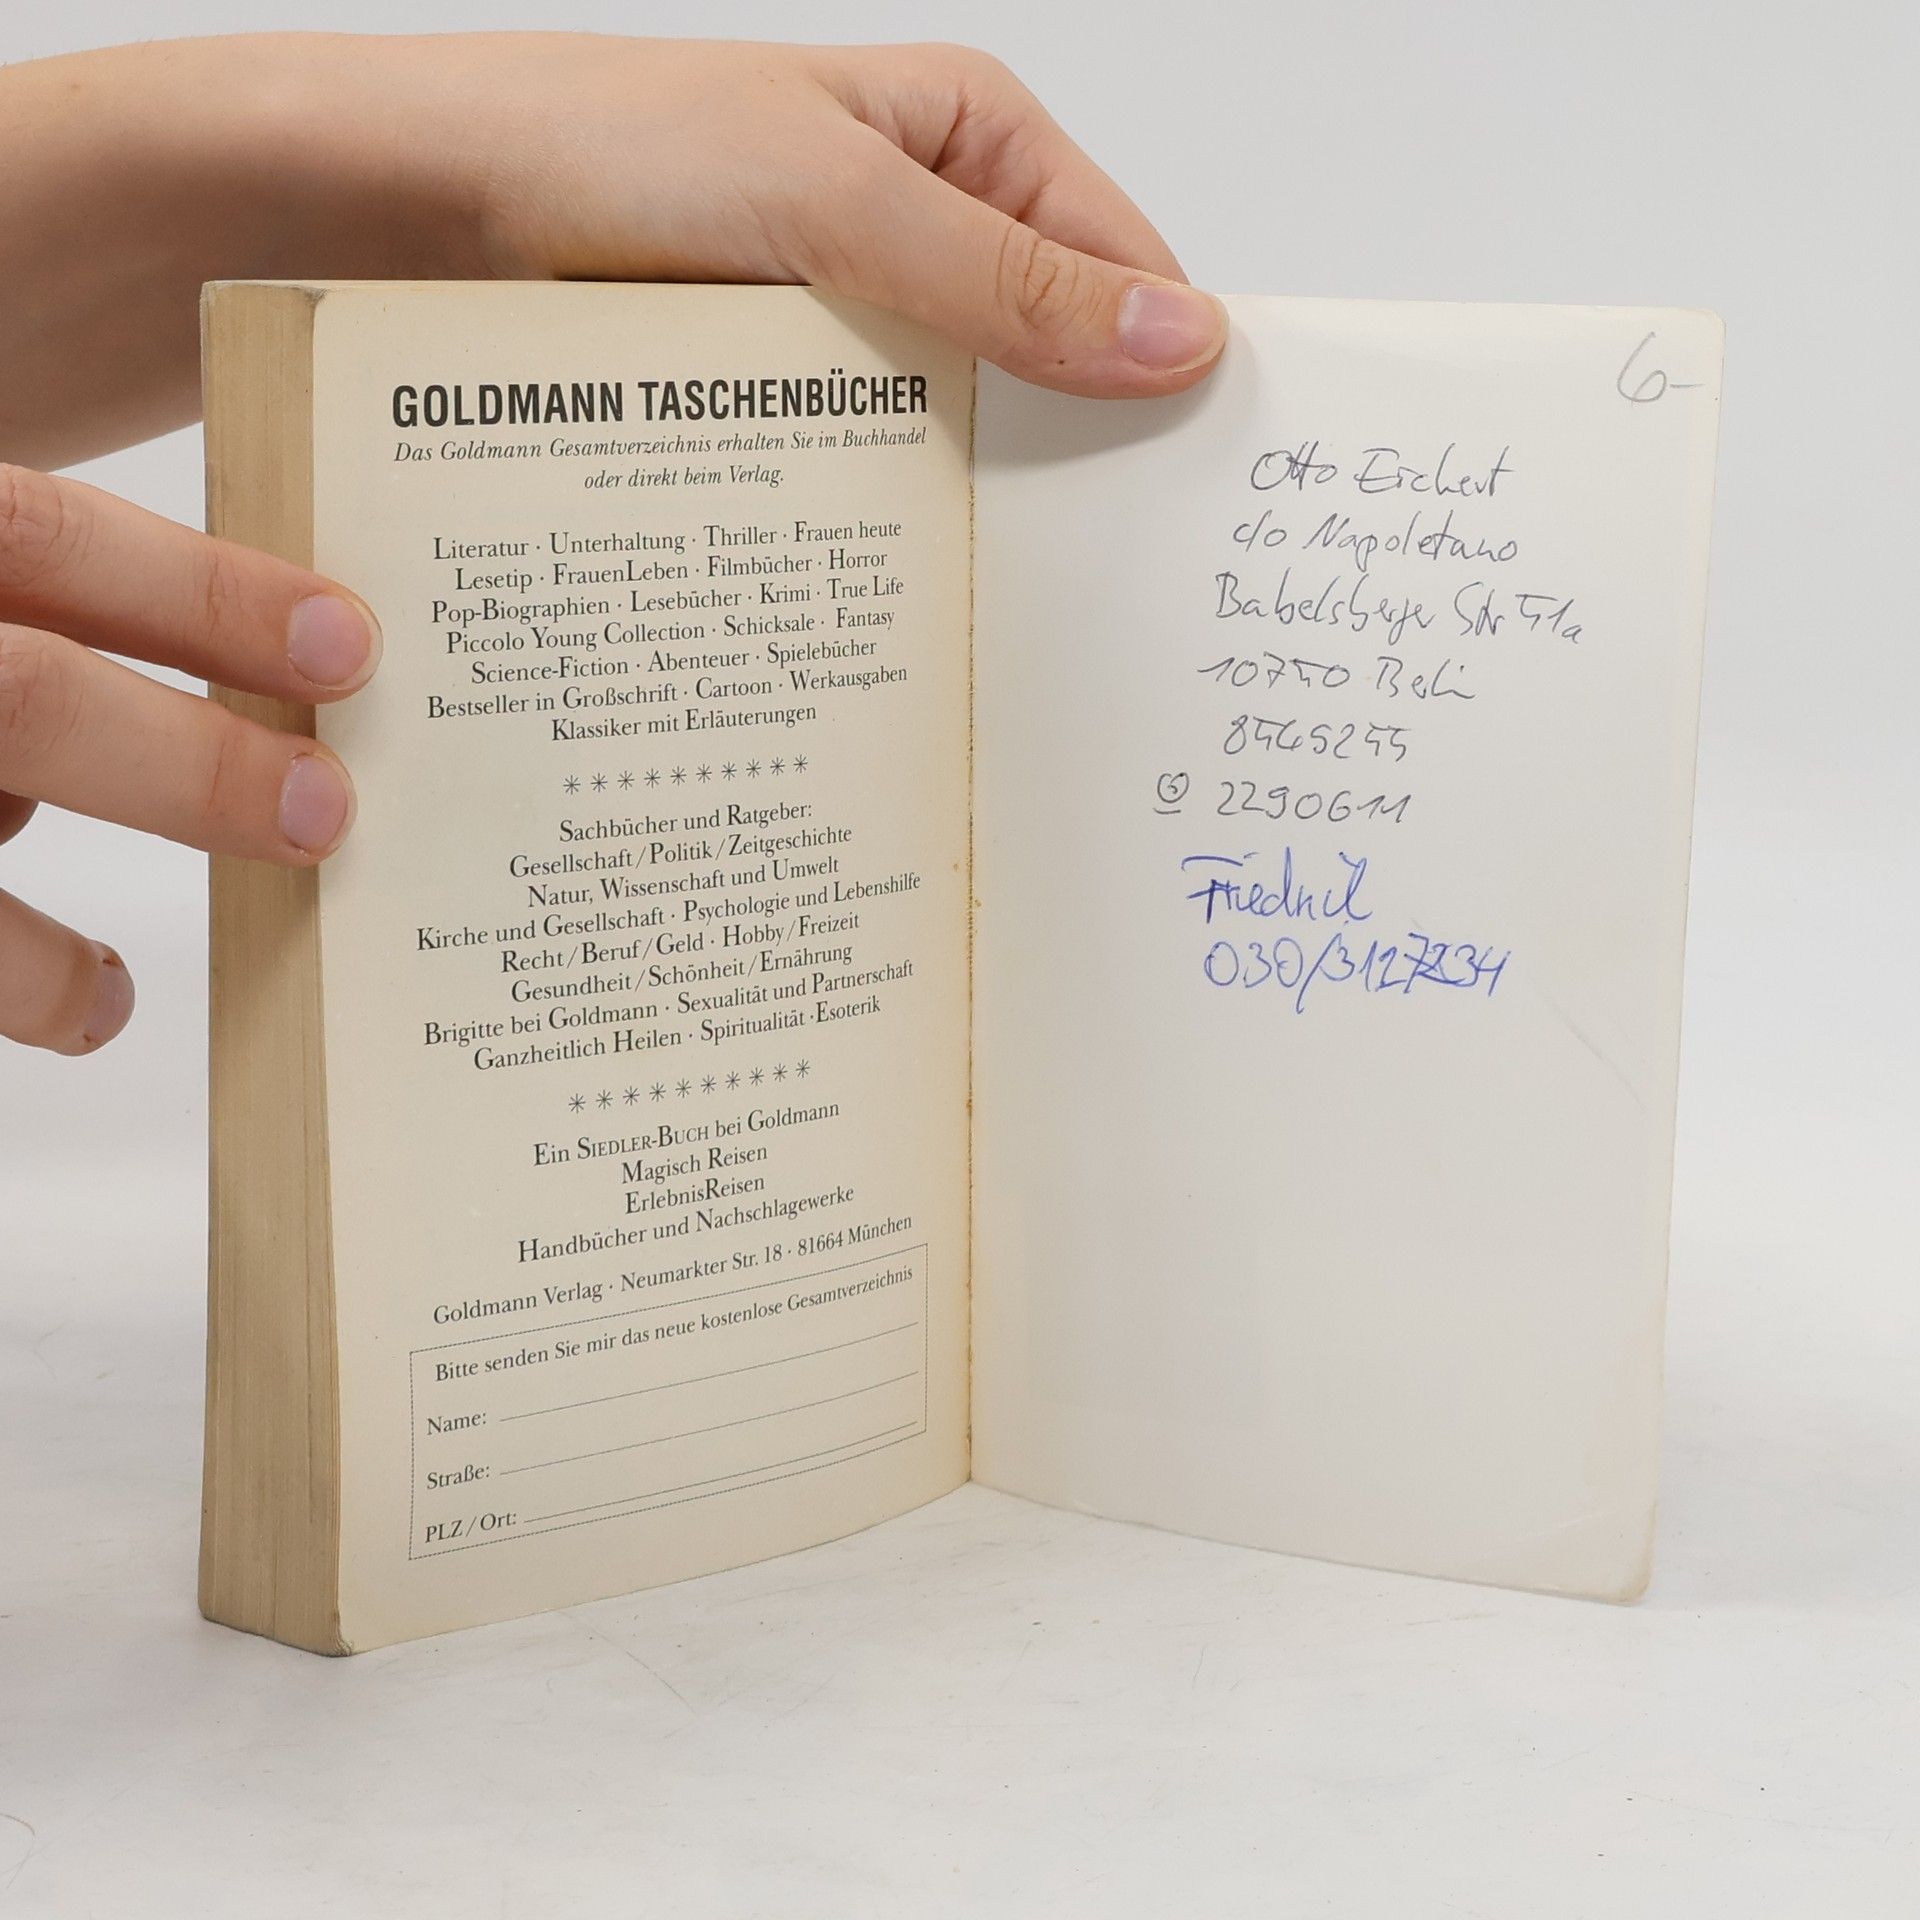 GOLDMANN TASCHENBÜCHER
Das Goldmann Gesamtverzeichnis erhalten Sie im Buchhandel
oder direkt beim Verlag.
Literatur · Unterhaltung · Thriller · Frauen heute
Lesetip · FrauenLeben · Filmbücher · Horror
Pop-Biographien · Lesebücher · Krimi · True Life
Piccolo Young Collection · Schicksale · Fantasy
Science-Fiction · Abenteuer · Spielebücher
Bestseller in Großschrift · Cartoon · Werkausgaben
Klassiker mit Erläuterungen
**********
Sachbücher und Ratgeber:
Gesellschaft/Politik/Zeitgeschichte
Natur, Wissenschaft und Umwelt
Kirche und Gesellschaft · Psychologie und Lebenshilfe
Recht/Beruf/Geld · Hobby/Freizeit
Gesundheit/Schönheit/Ernährung
Brigitte bei Goldmann · Sexualität und Partnerschaft
Ganzheitlich Heilen · Spiritualität · Esoterik
**********
Ein SIEDLER-BUCH bei Goldmann
Magisch Reisen
ErlebnisReisen
Handbücher und Nachschlagewerke
Goldmann Verlag · Neumarkter Str. 18 · 81664 München
Bitte senden Sie mir das neue kostenlose Gesamtverzeichnis
Name:
Straße:
PLZ/Ort:
6-
Otto Eichert
c/o Napoletano
Babelsberger Str 51a
10750 Berlin
8565255
2290611
Friedrich